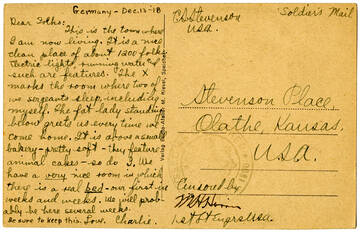 Germany - Dec. 13 - 18
Dear Folks:
This is the town where
I am now living. It is a nice
clean place of about 1200 folks
Electric lights, running water and
such are features. The X
marks the room where two of
we sergeants sleep, including
myself. The fat lady standing
below greets us every time we
come home. It is above a small
bakery - pretty soft - they feature
animal cakes - so do I. We
have a very nice room in which
there is a real bed - our first in
weeks and weeks. We will prob-
ably be here several weeks.
Be sure to keep this. Love. Charlie.
C.S. Stevenson
U.S.A.
Soldier's Mail
Stevenson Place,
Olathe, Kansas.
U.S.A.
Censored by
1st Lt Engrs USA.